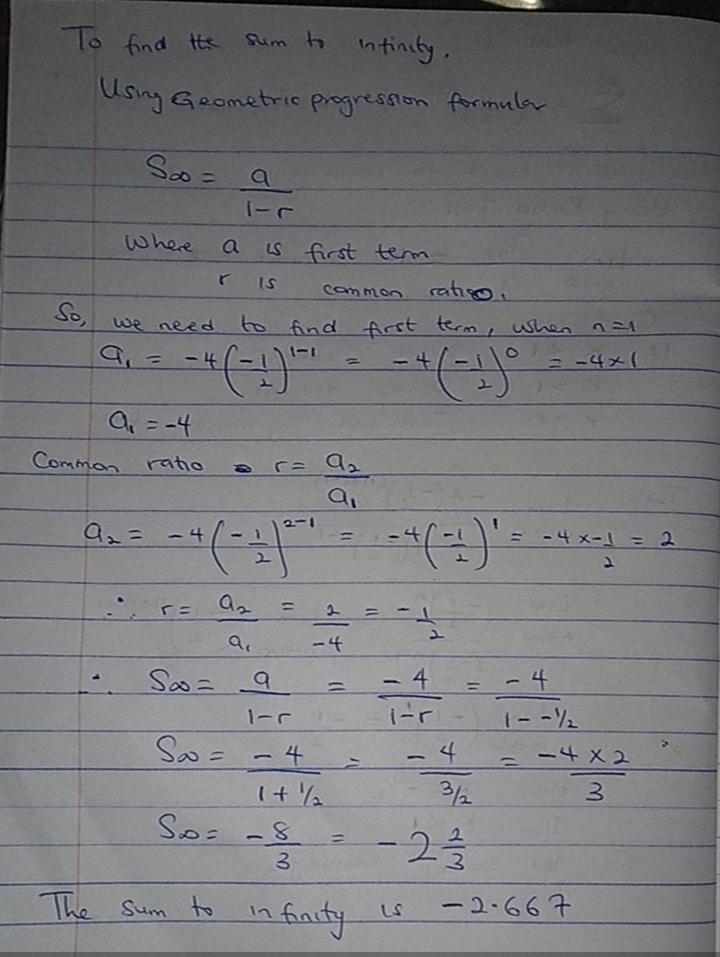 To find the sum to infinity.
Using Geometric progression formular
S∞ = a/(1-r)
Where a is first term
r is common ratio.
So, we need to find first term, when n=1
a₁ = -4(-1/2)^(1-1) = -4(-1/2)^0 = -4×1
a₁ = -4
Common ratio r = a₂/a₁
a₂ = -4(-1/2)^(2-1) = -4(-1/2)^1 = -4 × -1/2 = 2
∴ r = a₂/a₁ = 2/-4 = -1/2
∴ S∞ = a/(1-r) = -4/(1-r) = -4/(1--1/2)
S∞ = -4/(1+1/2) = -4/(3/2) = (-4×2)/3
S∞ = -8/3 = -2 2/3
The sum to infinity is -2.667